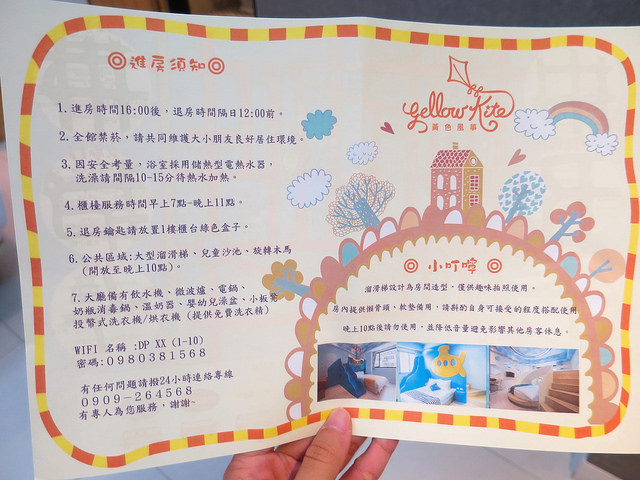 ◎進房須知◎
1.進房時間16:00後，退房時間隔日12:00前。
2.全館禁菸，請共同維護大小朋友良好居住環境。
3.因安全考量，浴室採用儲熱型電熱水器，
洗澡請間隔10-15分待熱水加熱。
4.櫃檯服務時間早上7點-晚上11點。
5.退房鑰匙請放置1樓櫃台綠色盒子。
6.公共區域:大型溜滑梯、兒童沙池、旋轉木馬
(開放至晚上10點)。
7.大廳備有飲水機、微波爐、電鍋、
奶瓶消毒鍋、溫奶器、嬰幼兒澡盆、小板凳
投幣式洗衣機/烘衣機(提供免費洗衣精)
WIFI 名稱 :DP XX (1-10)
密碼:0980381568
有任何問題請撥24小時連絡專線
0909-264568
有專人為您服務，謝謝~
yellow Kite
黃色風箏
◎ 小叮嚀 ◎
溜滑梯設計為房間造型，僅供趣味拍照使用。
房內提供懶骨頭、軟墊備用，請斟酌自身可接受的程度搭配使用
晚上10點後請勿使用，並降低音量避免影響其他房客休息。